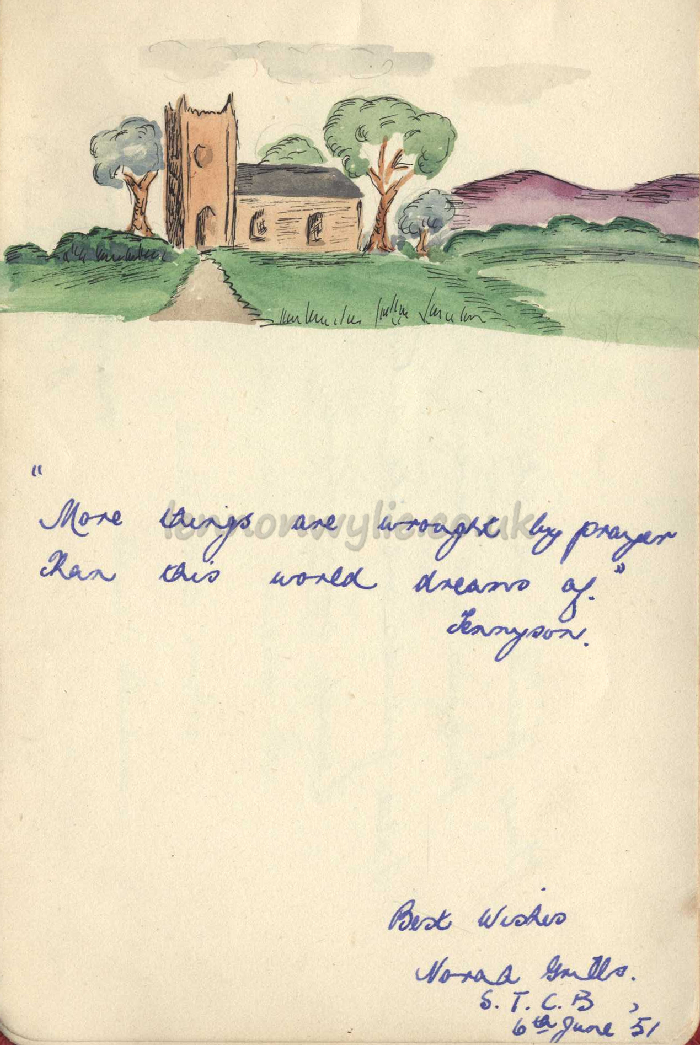 "
More things are wrought by prayer
Than this world dreams of."
Tennyson.
lennonwylie.co.uk
Best Wishes
Norah
S. T. C. B,
6th June 51